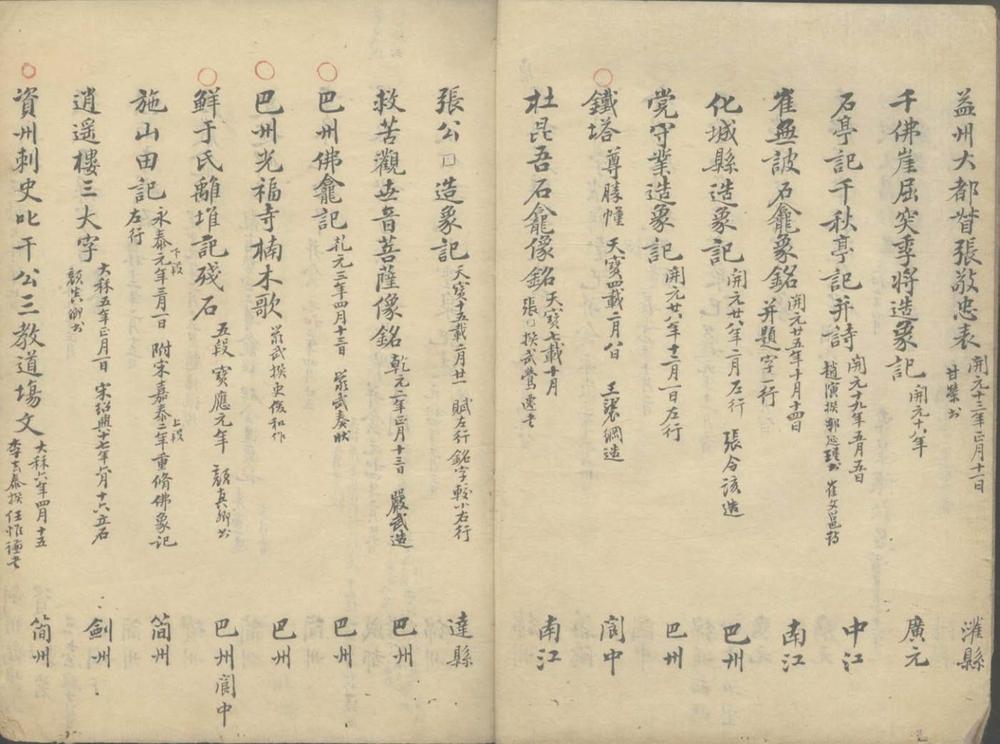 益州大都督張敬忠表 開元十三年正月十一日 甘榮書 灌縣
千佛崖屈突季將造象記 開元十八年 廣元
石亭記千秋亭記并詩 開元十九年五月五日 趙演撰 崔文邕 中江
崔無詖石龕象銘 開元廿五年十月十四日 并題字一行 南江
化城縣造象記 開元廿八年二月左行 張令該造 巴州
党守業造象記 開元廿八年十二月一日左行 巴州
鐵塔尊勝幢 天寶四載二月八日 王裴綱造 閬中
杜昆吾石龕像銘 天寶七載十月 張□撰 南江
張公□造象記 天寶十五載二月廿一 賦左行銘字較小右行 達縣
救苦觀世音菩薩像銘 乾元二年正月十三日 嚴武造 巴州
巴州佛龕記 乾元三年四月十三日 嚴武奏狀 巴州
巴州光福寺楠木歌 嚴武撰史俊和作 巴州
鮮于氏離堆記殘石 五段 寶應元年 顏真卿書 巴州閬中
施山田記 下段 永泰元年三月一日左行 上段 附宋嘉泰二年重脩佛象記 簡州
逍遥樓三大字 大厤五年正月一日 顏真卿書 宋紹興十七年六月十六立石 劍州
資州刺史叱干公三教道塲文 大厤六年四月十五 李去泰撰任惟謙書 簡州